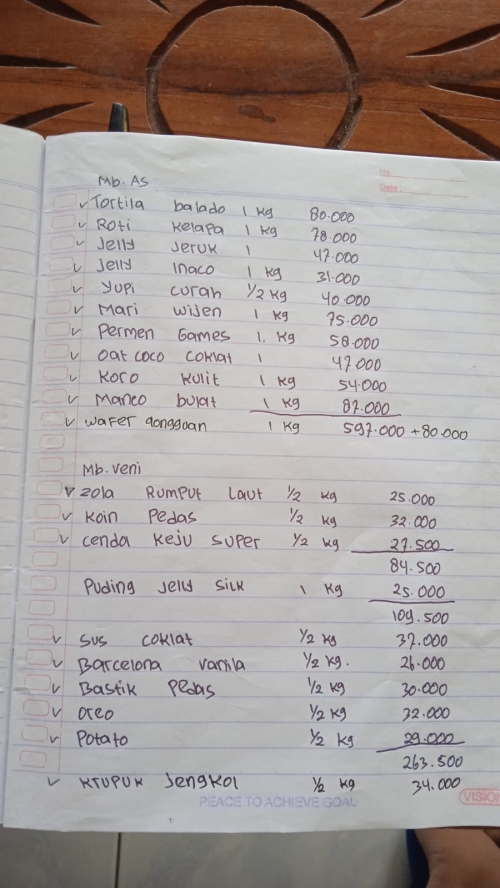 No
Date :
Mb. As
✓ Tortila balado 1 kg 80.000
✓ Roti kelapa 1 kg 78.000
✓ Jelly Jeruk 1 47.000
✓ Jelly Inaco 1 kg 31.000
✓ Yupi curah 1/2 kg 40.000
✓ Mari wijen 1 kg 75.000
✓ Permen Games 1. kg 58.000
✓ oat coco coklat 1 47.000
✓ Koro kulit 1 kg 54.000
✓ Manco bulat 1 kg 87.000
✓ wafer gonggoan 1 kg 597.000 + 80.000
Mb. veni
✓ zola Rumput laut 1/2 kg 25.000
✓ Koin Pedas 1/2 kg 32.000
✓ cenda keju super 1/2 kg 27.500
84.500
Puding Jelly Silk 1 kg 25.000
109.500
✓ Sus coklat 1/2 kg 37.000
✓ Barcelona vanila 1/2 kg. 26.000
✓ Bastik Pedas 1/2 kg 30.000
✓ oreo 1/2 kg 32.000
✓ Potato 1/2 kg 29.000
263.500
✓ krupuk Jengkol 1/2 kg 34.000
PEACE TO ACHIEVE GOAL
VISION